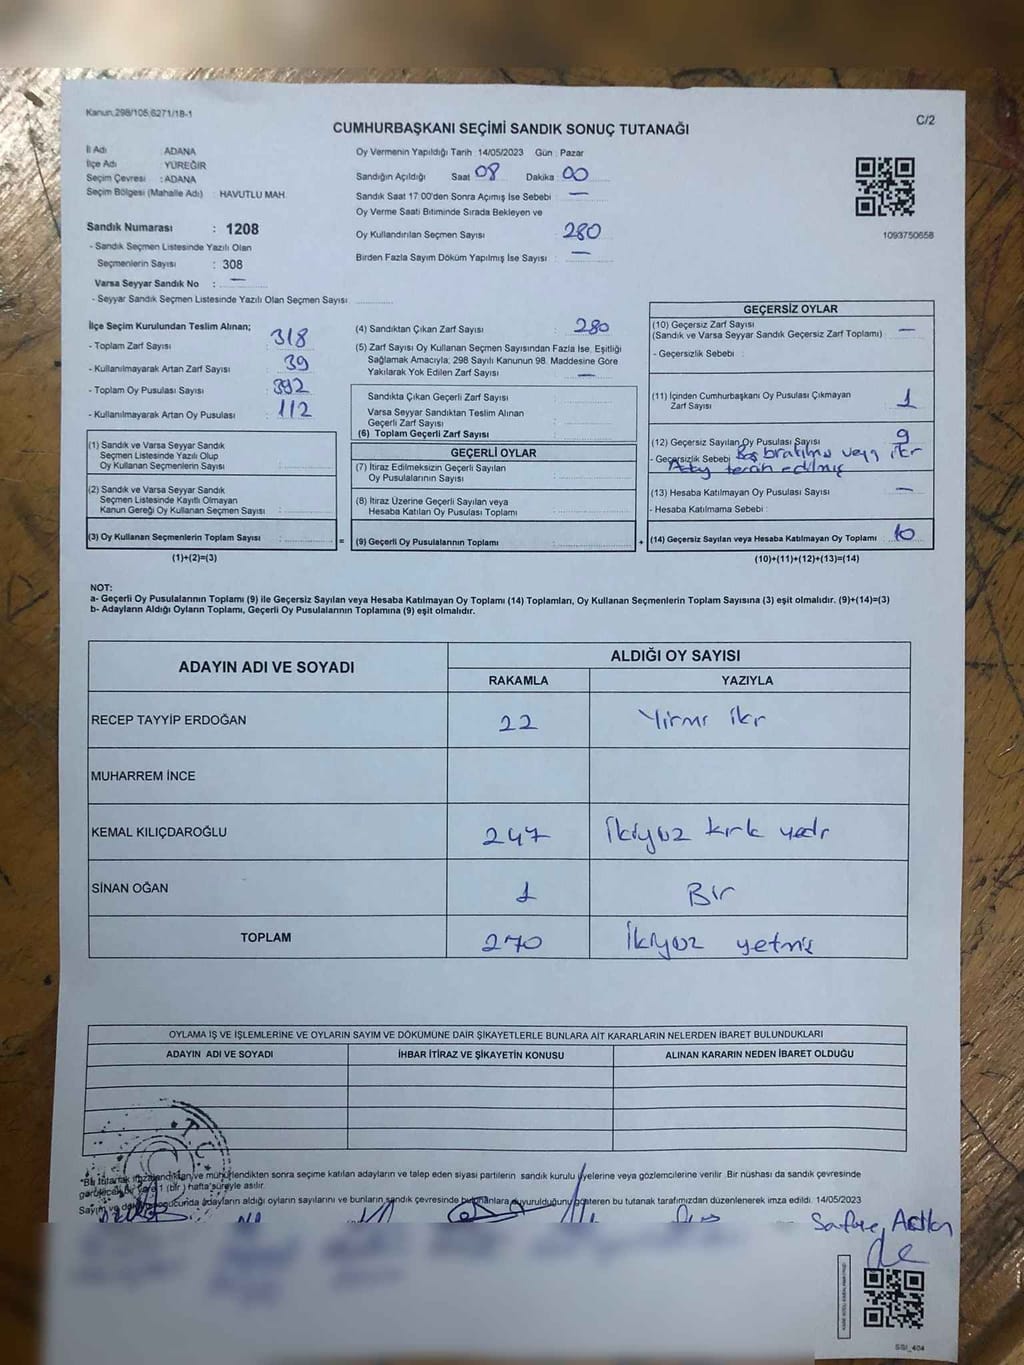 Kanun.298/105;6271/18-1
C/2
CUMHURBAŞKANI SEÇİMİ SANDIK SONUÇ TUTANAĞI
İl Adı : ADANA
İlçe Adı : YÜREĞİR
Seçim Çevresi : ADANA
Seçim Bölgesi (Mahalle Adı) : HAVUTLU MAH.
Sandık Numarası : 1208
- Sandık Seçmen Listesinde Yazılı Olan
Seçmenlerin Sayısı : 308
Varsa Seyyar Sandık No : —
- Seyyar Sandık Seçmen Listesinde Yazılı Olan Seçmen Sayısı
Oy Vermenin Yapıldığı Tarih : 14/05/2023 Gün : Pazar
Sandığın Açıldığı Saat 08 Dakika : 00
Sandık Saat 17.00'den Sonra Açımış İse Sebebi : —
Oy Verme Saati Bitiminde Sırada Bekleyen ve
Oy Kullandırılan Seçmen Sayısı : 280
Birden Fazla Sayım Döküm Yapılmış İse Sayısı : —
1093750658
İlçe Seçim Kurulundan Teslim Alınan;
- Toplam Zarf Sayısı : 318
- Kullanılmayarak Artan Zarf Sayısı : 39
- Toplam Oy Pusulası Sayısı : 392
- Kullanılmayarak Artan Oy Pusulası : 112
(1) Sandık ve Varsa Seyyar Sandık
Seçmen Listesinde Yazılı Olup
Oy Kullanan Seçmenlerin Sayısı :
(2) Sandık ve Varsa Seyyar Sandık
Seçmen Listesinde Kayıtlı Olmayan
Kanun Gereği Oy Kullanan Seçmen Sayısı :
(3) Oy Kullanan Seçmenlerin Toplam Sayısı :
(1)+(2)=(3)
(4) Sandıktan Çıkan Zarf Sayısı : 280
(5) Zarf Sayısı Oy Kullanan Seçmen Sayısından Fazla İse, Eşitliği
Sağlamak Amacıyla, 298 Sayılı Kanunun 98. Maddesine Göre
Yakılarak Yok Edilen Zarf Sayısı : —
Sandıkta Çıkan Geçerli Zarf Sayısı :
Varsa Seyyar Sandıktan Teslim Alınan
Geçerli Zarf Sayısı :
(6) Toplam Geçerli Zarf Sayısı :
GEÇERLİ OYLAR
(7) İtiraz Edilmeksizin Geçerli Sayılan
Oy Pusulalarının Sayısı :
(8) İtiraz Üzerine Geçerli Sayılan veya
Hesaba Katılan Oy Pusulası Toplamı :
= (9) Geçerli Oy Pusulalarının Toplamı :
GEÇERSİZ OYLAR
(10) Geçersiz Zarf Sayısı
(Sandık ve Varsa Seyyar Sandık Geçersiz Zarf Toplamı) : —
- Geçersizlik Sebebi :
(11) İçinden Cumhurbaşkanı Oy Pusulası Çıkmayan
Zarf Sayısı : 1
(12) Geçersiz Sayılan Oy Pusulası Sayısı : 9
- Geçersizlik Sebebi : Boş bıratılmış veya iki
Aday tercih edilmiş
(13) Hesaba Katılmayan Oy Pusulası Sayısı : —
- Hesaba Katılmama Sebebi :
+ (14) Geçersiz Sayılan veya Hesaba Katılmayan Oy Toplamı : 10
(10)+(11)+(12)+(13)=(14)
NOT:
a- Geçerli Oy Pusulalarının Toplamı (9) ile Geçersiz Sayılan veya Hesaba Katılmayan Oy Toplamı (14) Toplamları, Oy Kullanan Seçmenlerin Toplam Sayısına (3) eşit olmalıdır. (9)+(14)=(3)
b- Adayların Aldığı Oyların Toplamı, Geçerli Oy Pusulalarının Toplamına (9) eşit olmalıdır.
ADAYIN ADI VE SOYADI
ALDIĞI OY SAYISI
RAKAMLA YAZIYLA
RECEP TAYYİP ERDOĞAN 22 Yirmi iki
MUHARREM İNCE
KEMAL KILIÇDAROĞLU 247 İkiyüz kırk yedi
SİNAN OĞAN 1 Bir
TOPLAM 270 İkiyüz yetmiş
OYLAMA İŞ VE İŞLEMLERİNE VE OYLARIN SAYIM VE DÖKÜMÜNE DAİR ŞİKAYETLERLE BUNLARA AİT KARARLARIN NELERDEN İBARET BULUNDUKLARI
ADAYIN ADI VE SOYADI İHBAR İTİRAZ VE ŞİKAYETİN KONUSU ALINAN KARARIN NEDEN İBARET OLDUĞU
T.C.
*Bu tutanak imzalandıktan ve mühürlendikten sonra seçime katılan adayların ve talep eden siyasi partilerin sandık kurulu üyelerine veya gözlemcilerine verilir. Bir nüshası da sandık çevresinde
görülecek bir yere 1 (bir ) hafta süreyle asılır.
Sayım ve döküm sonucunda adayların aldığı oyların sayılarını ve bunların sandık çevresinde bulunanlara duyurulduğunu gösteren bu tutanak tarafımızdan düzenlenerek imza edildi. 14/05/2023
SSI_404